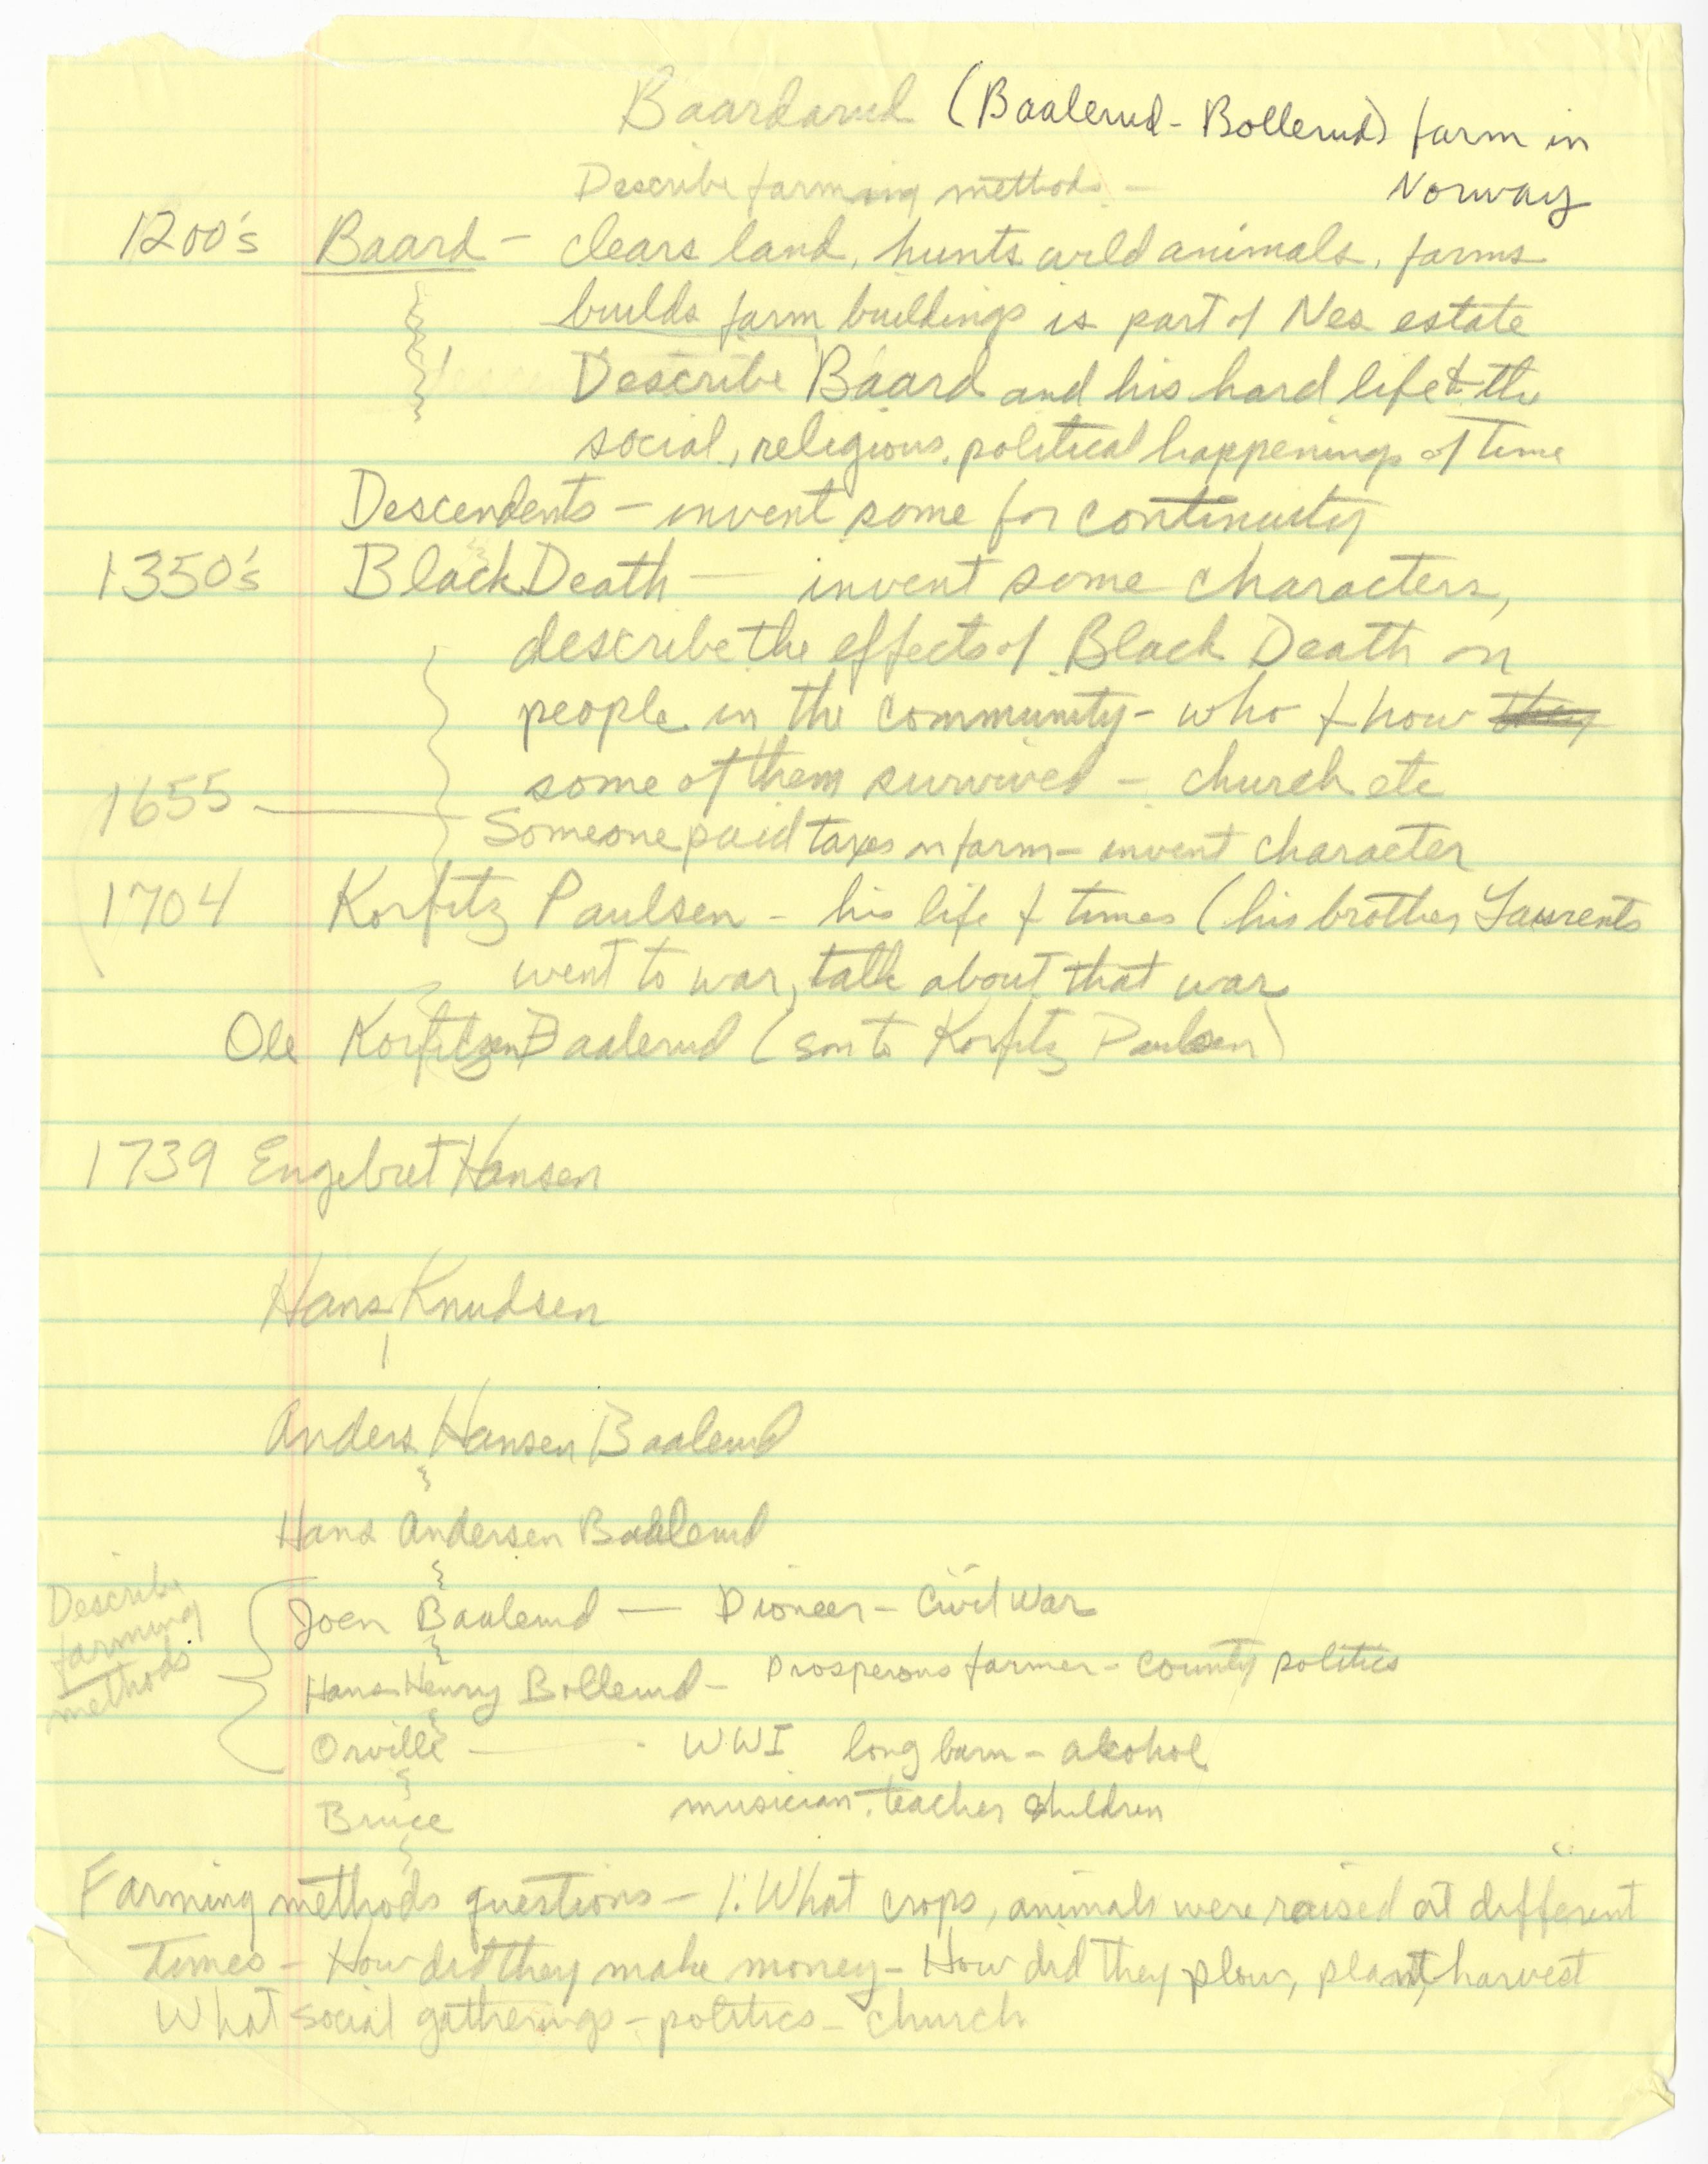 Baardarud (Baalerud - Bollerud) farm in
Norway
Describe farming methods -
1200's Baard - clears land, hunts wild animals, farms
builds farm buildings is part of Nes estate
Describe Baard and his hard life & the
social, religious, political happenings of time
Descendents - invent some for continuity
1350's Black Death - invent some characters,
describe the effects of Black Death on
people in the community - who & how they
some of them survived - church etc
1655 Someone paid taxes on farm - invent character
1704 Korfitz Paulsen - his life & times (his brother Laurents
went to war, talk about that war
Ole Korfitzen Baalerud (son to Korfitz Paulsen)
1739 Engebret Hansen
Hans Knudsen
Anders Hansen Baalerud
Hans Andersen Baalerud
Describe
farming
methods
Joen Baalerud - Pioneer - Civil War
Hans Henry Bollerud - Prosperous farmer - County politics
Orville - WWI long barn - alcohol
Bruce musician - teacher children
Farming methods questions - 1. What crops, animals were raised at different
times - How did they make money - How did they plow, plant, harvest
What social gatherings - politics - church